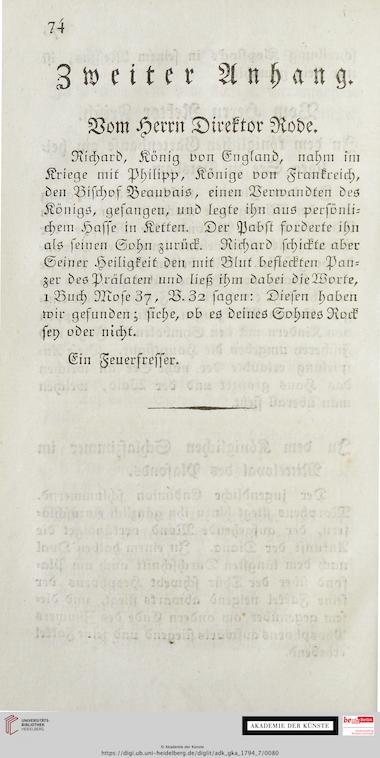 74
Zweiter Anhang.
Vom Herrn Direktor Rode.
Richard, König von England, nahm im
Kriege mit Philipp, Könige von Frankreich,
den Bischof Beauvais, einen Verwandten des
Königs, gefangen, und legte ihn aus persönli-
chem Hasse in Ketten. Der Pabst forderte ihn
als seinen Sohn zurück. Richard schickte aber
Seiner Heiligkeit den mit Blut befleckten Pan-
zer des Prälaten und ließ ihm dabei die Worte,
1 Buch Mose 37, V. 32 sagen: Diesen haben
wir gefunden; siehe, ob es deines Sohnes Rock
sey oder nicht.
Ein Feuerfresser.
UNIVERSITÄTS-
BIBLIOTHEK
HEIDELBERG
AKADEMIE DER KÜNSTE
© Akademie der Künste
https://digi.ub.uni-heidelberg.de/diglit/adk_gka_1794_7/0080